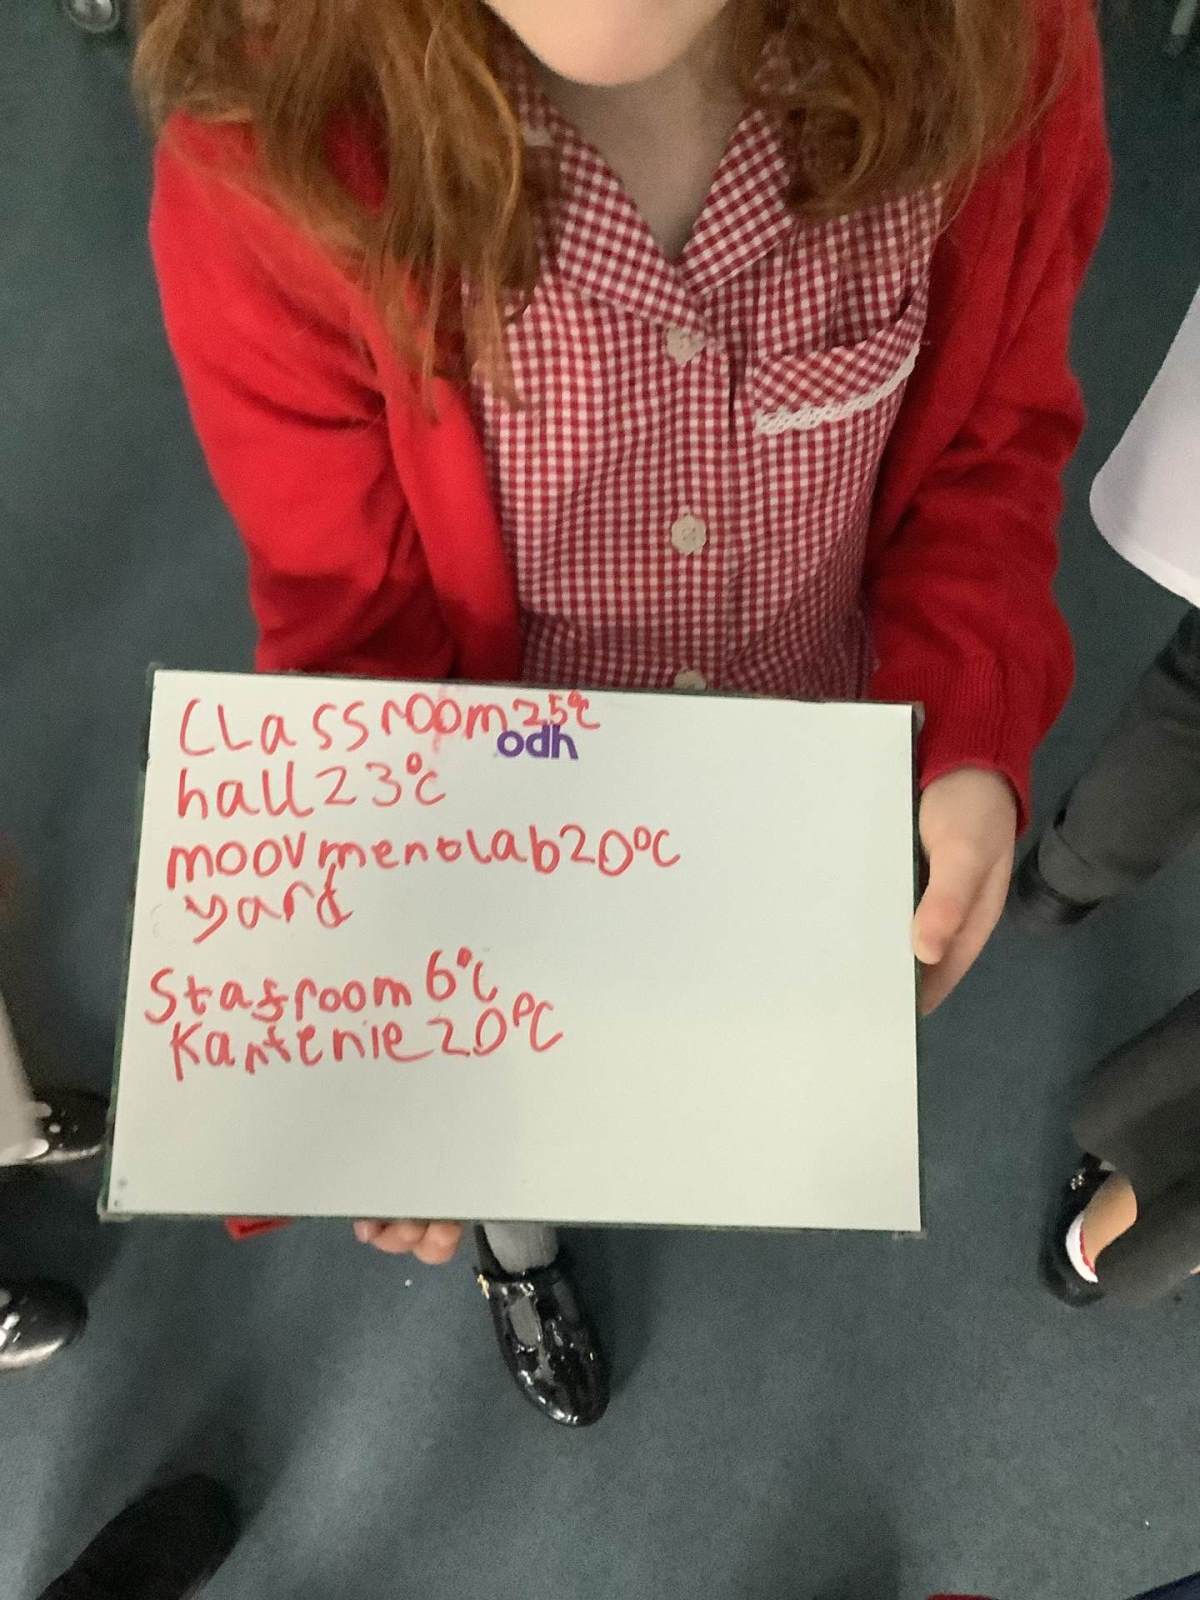 Classroom 25°c
odh
hall 23°c
moovmentlab 20°C
yard
Stafroom 6°c
Kantenie 20°C